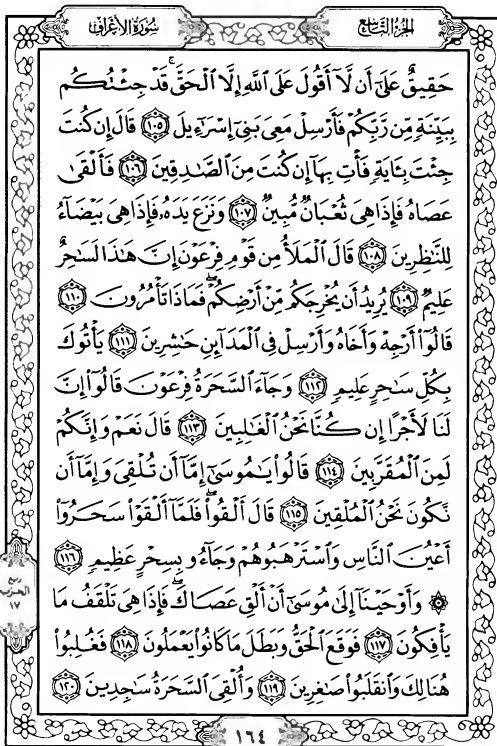 الجزء التاسع
سورة الأعراف
حَقِيقٌ عَلَىٰٓ أَن لَّآ أَقُولَ عَلَى ٱللَّهِ إِلَّا ٱلۡحَقَّۚ قَدۡ جِئۡتُكُم
بِبَيِّنَةٖ مِّن رَّبِّكُمۡ فَأَرۡسِلۡ مَعِيَ بَنِيٓ إِسۡرَٰٓءِيلَ ١٠٥ قَالَ إِن كُنتَ
جِئۡتَ بِـَٔايَةٖ فَأۡتِ بِهَآ إِن كُنتَ مِنَ ٱلصَّٰدِقِينَ ١٠٦ فَأَلۡقَىٰ
عَصَاهُ فَإِذَا هِيَ ثُعۡبَانٞ مُّبِينٞ ١٠٧ وَنَزَعَ يَدَهُۥ فَإِذَا هِيَ بَيۡضَآءُ
لِلنَّٰظِرِينَ ١٠٨ قَالَ ٱلۡمَلَأُ مِن قَوۡمِ فِرۡعَوۡنَ إِنَّ هَٰذَا لَسَٰحِرٌ
عَلِيمٞ ١٠٩ يُرِيدُ أَن يُخۡرِجَكُم مِّنۡ أَرۡضِكُمۡۖ فَمَاذَا تَأۡمُرُونَ ١١٠
قَالُوٓاْ أَرۡجِهۡ وَأَخَاهُ وَأَرۡسِلۡ فِي ٱلۡمَدَآئِنِ حَٰشِرِينَ ١١١ يَأۡتُوكَ
بِكُلِّ سَٰحِرٍ عَلِيمٖ ١١٢ وَجَآءَ ٱلسَّحَرَةُ فِرۡعَوۡنَ قَالُوٓاْ إِنَّ
لَنَا لَأَجۡرًا إِن كُنَّا نَحۡنُ ٱلۡغَٰلِبِينَ ١١٣ قَالَ نَعَمۡ وَإِنَّكُمۡ
لَمِنَ ٱلۡمُقَرَّبِينَ ١١٤ قَالُواْ يَٰمُوسَىٰٓ إِمَّآ أَن تُلۡقِيَ وَإِمَّآ أَن
نَّكُونَ نَحۡنُ ٱلۡمُلۡقِينَ ١١٥ قَالَ أَلۡقُواْۖ فَلَمَّآ أَلۡقَوۡاْ سَحَرُوٓاْ
أَعۡيُنَ ٱلنَّاسِ وَٱسۡتَرۡهَبُوهُمۡ وَجَآءُو بِسِحۡرٍ عَظِيمٖ ١١٦
۞ وَأَوۡحَيۡنَآ إِلَىٰ مُوسَىٰٓ أَنۡ أَلۡقِ عَصَاكَۖ فَإِذَا هِيَ تَلۡقَفُ مَا
يَأۡفِكُونَ ١١٧ فَوَقَعَ ٱلۡحَقُّ وَبَطَلَ مَا كَانُواْ يَعۡمَلُونَ ١١٨ فَغُلِبُواْ
هُنَالِكَ وَٱنقَلَبُواْ صَٰغِرِينَ ١١٩ وَأُلۡقِيَ ٱلسَّحَرَةُ سَٰجِدِينَ ١٢٠
ربع
الحزب
١٧
١٦٤